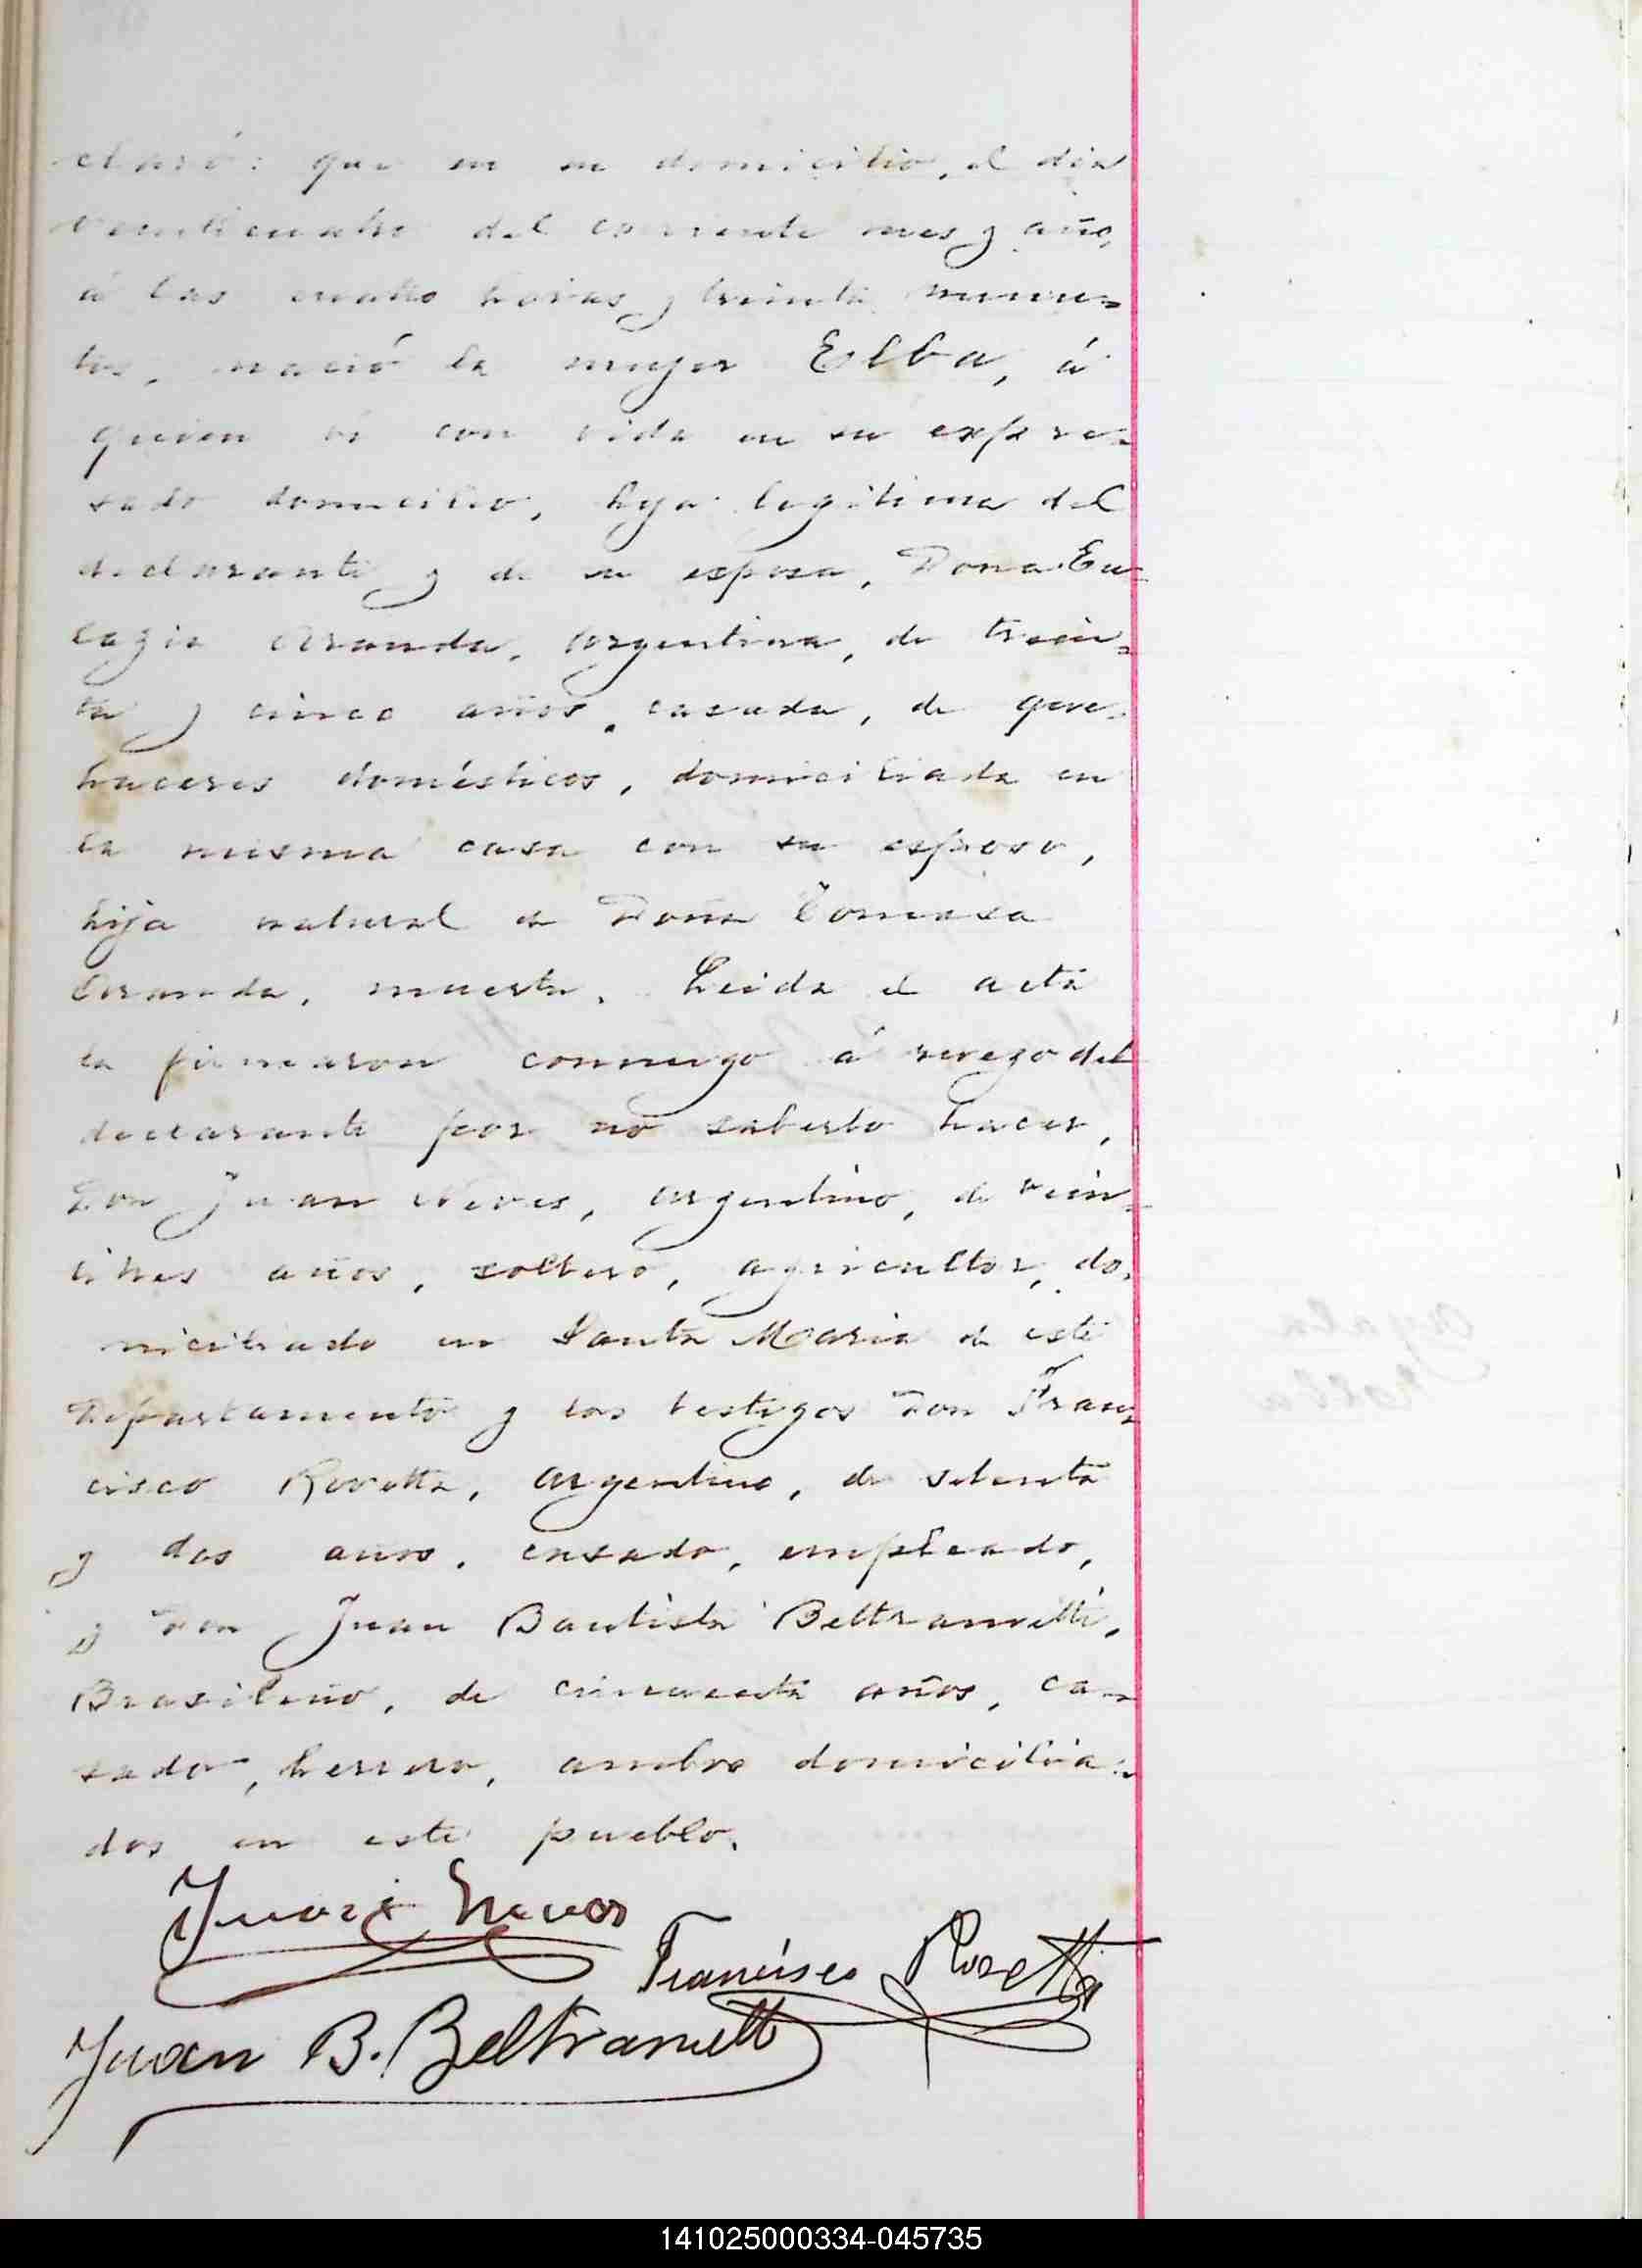 claró: que en su domicilio, el día
veinticuatro del corriente mes y año,
á las cuatro horas y treinta minu=
tos, nació la mujer Elba, á
quien ví con vida en su expre=
sado domicilio, hija legítima del
declarante y de su esposa, Doña Eu=
lagia Aranda, argentina, de trein=
ta y cinco años, casada, de que=
haceres domésticos, domiciliada en
la misma casa con su esposo,
hija natural de Doña Tomasa
Aranda, muerta. Leida el acta
la firmaron conmigo á ruego del
declarante por no saberlo hacer,
Don Juan Neves, argentino, de vein=
titres años, soltero, agricultor, do=
miciliado en Santa María de este
Departamento y los testigos Don Fran=
cisco Rovetta, argentino, de setenta
y dos años, casado, empleado,
y Don Juan Bautista Beltrametti,
Brasileño, de cincuenta años, ca=
sado, herrero, ambos domicilia=
dos en este pueblo.
Juan Neves
Francisco Rovetta
Juan B. Beltrametti
141025000334-045735